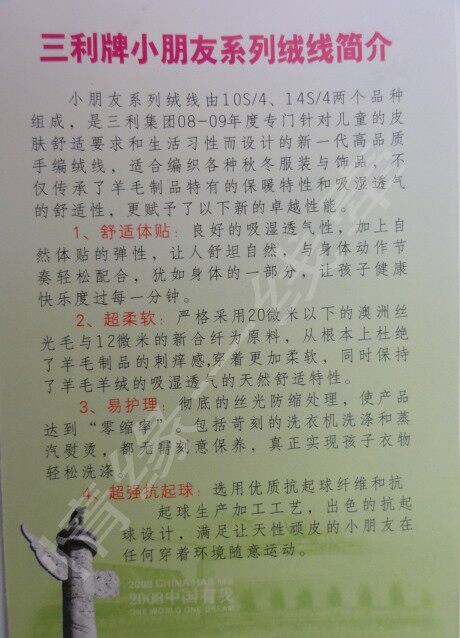 三利牌小朋友系列绒线简介
小朋友系列绒线由10S/4、14S/4两个品种
组成，是三利集团08-09年度专门针对儿童的皮
肤舒适要求和生活习性而设计的新一代高品质
手编绒线，适合编织各种秋冬服装与饰品，不
仅传承了羊毛制品特有的保暖特性和吸湿透气
的舒适性，更赋予了以下新的卓越性能。
1、舒适体贴：良好的吸湿透气性，加上自
然体贴的弹性，让人舒坦自然，与身体动作节
奏轻松配合，犹如身体的一部分，让孩子健康
快乐度过每一分钟。
2、超柔软：严格采用20微米以下的澳洲丝
光毛与12微米的新合纤为原料，从根本上杜绝
了羊毛制品的刺痒感,穿着更加柔软，同时保持
了羊毛羊绒的吸湿透气的天然舒适特性。
3、易护理：彻底的丝光防缩处理，使产品
达到“零缩率”，包括苛刻的洗衣机洗涤和蒸
汽熨烫，都无需刻意保养，真正实现孩子衣物
轻松洗涤。
4、超强抗起球：选用优质抗起球纤维和抗
起球生产加工工艺，出色的抗起
球设计，满足让天性顽皮的小朋友在
任何穿着环境随意运动。
2008 CHINA HAS ME
2008中国有我
ONE WORLD ONE DREAM